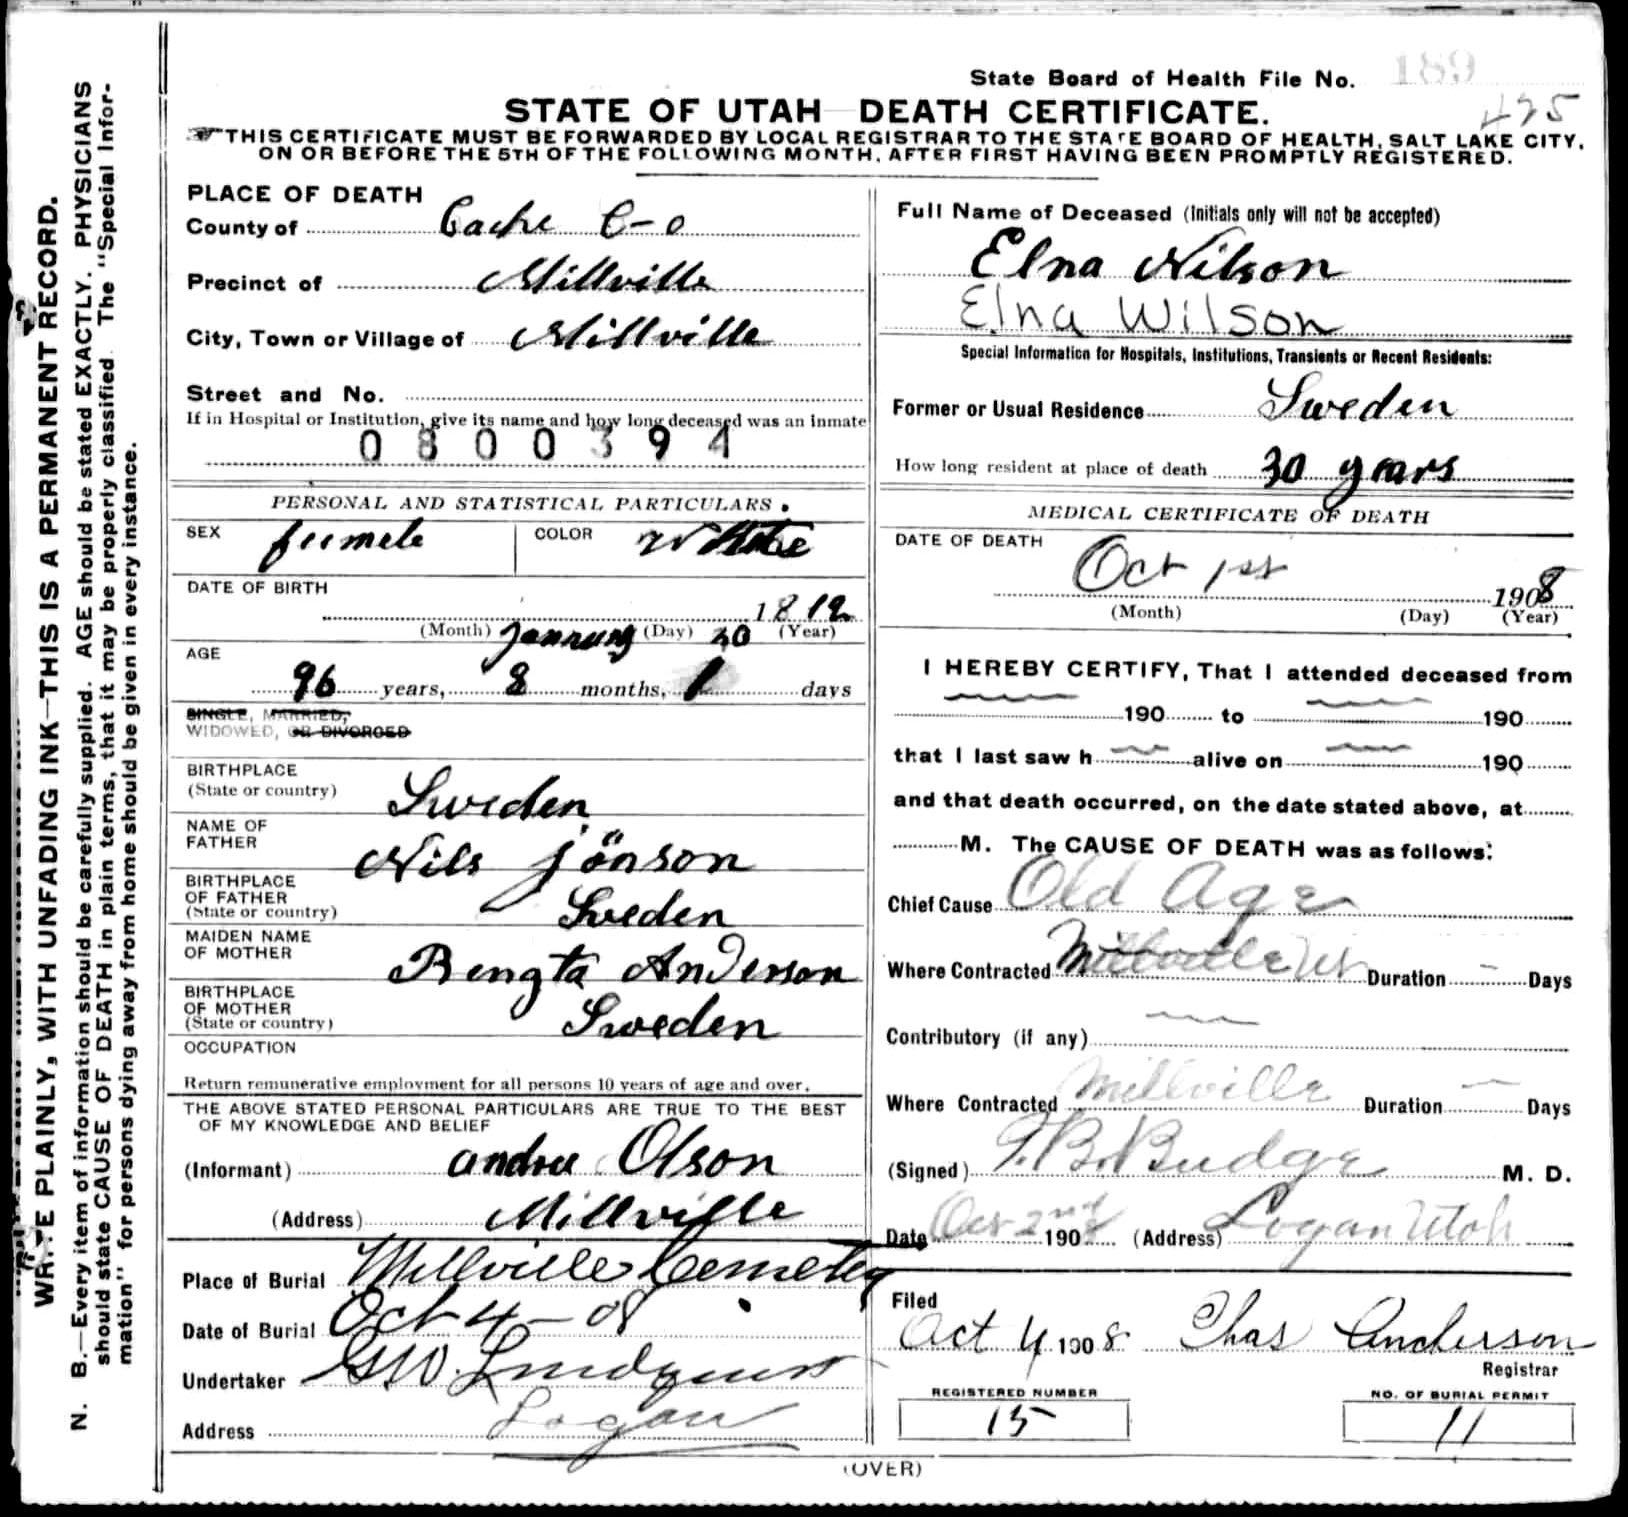 State Board of Health File No. 189
425
STATE OF UTAH DEATH CERTIFICATE.
THIS CERTIFICATE MUST BE FORWARDED BY LOCAL REGISTRAR TO THE STATE BOARD OF HEALTH, SALT LAKE CITY,
ON OR BEFORE THE 5TH OF THE FOLLOWING MONTH, AFTER FIRST HAVING BEEN PROMPTLY REGISTERED.
WRITE PLAINLY, WITH UNFADING INK—THIS IS A PERMANENT RECORD.
N. B.—Every item of information should be carefully supplied. AGE should be stated EXACTLY. PHYSICIANS
should state CAUSE OF DEATH in plain terms, that it may be properly classified. The "Special Infor-
mation" for persons dying away from home should be given in every instance.
PLACE OF DEATH
County of Cache C-o
Precinct of Millville
City, Town or Village of Millville
Street and No.
If in Hospital or Institution, give its name and how long deceased was an inmate
0800394
PERSONAL AND STATISTICAL PARTICULARS.
SEX female COLOR White
DATE OF BIRTH
1812
(Month) January (Day) 30 (Year)
AGE
96 years, 8 months, 1 days
SINGLE, MARRIED,
WIDOWED, OR DIVORCED
BIRTHPLACE
(State or country) Sweden
NAME OF
FATHER Nils Jönson
BIRTHPLACE
OF FATHER
(State or country) Sweden
MAIDEN NAME
OF MOTHER Bengta Anderson
BIRTHPLACE
OF MOTHER
(State or country) Sweden
OCCUPATION
Return remunerative employment for all persons 10 years of age and over.
THE ABOVE STATED PERSONAL PARTICULARS ARE TRUE TO THE BEST
OF MY KNOWLEDGE AND BELIEF
(Informant) Andrew Olson
(Address) Millville
Place of Burial Millville Cemetery
Date of Burial Oct 4 - 08
Undertaker GW. Lindquist
Address Logan
Full Name of Deceased (Initials only will not be accepted)
Elna Nilson
Elna Wilson
Special Information for Hospitals, Institutions, Transients or Recent Residents:
Former or Usual Residence Sweden
How long resident at place of death 30 years
MEDICAL CERTIFICATE OF DEATH
DATE OF DEATH
Oct 1st 1908
(Month) (Day) (Year)
I HEREBY CERTIFY, That I attended deceased from
190 to 190
that I last saw h alive on 190
and that death occurred, on the date stated above, at
M. The CAUSE OF DEATH was as follows:
Chief Cause Old Age
Where Contracted Millville Ut Duration - Days
Contributory (if any)
Where Contracted Millville Duration - Days
(Signed) T. B. Budge M. D.
Date Oct 2nd 1908 (Address) Logan Utah
Filed
Oct 4 1908 Chas Anderson
Registrar
REGISTERED NUMBER
15
NO. OF BURIAL PERMIT
11
(OVER)